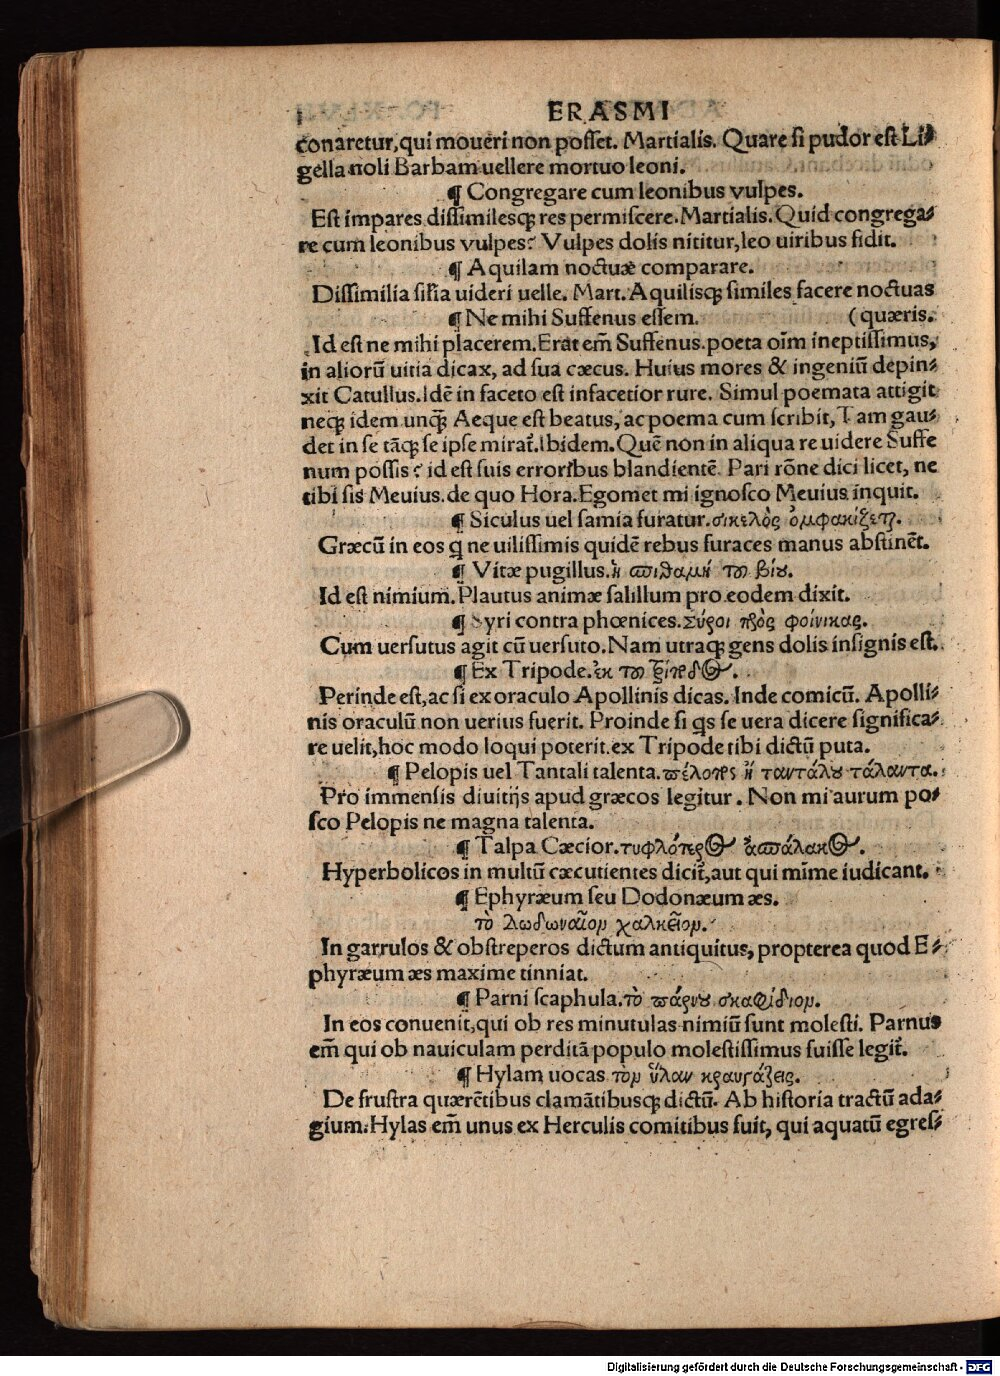 ERASMI
conaretur, qui moueri non posset. Martialis. Quare si pudor est Li⸗
gella noli Barbam uellere mortuo leoni.
¶ Congregare cum leonibus vulpes.
Est impares dissimilesq; res permiscere. Martialis. Quid congrega⸗
re cum leonibus vulpes? Vulpes dolis nititur, leo uiribus fidit.
¶ Aquilam noctuæ comparare.
Dissimilia sil̃ia uideri uelle. Mart. Aquilisq; similes facere noctuas
¶ Ne mihi Suffenus essem. (quæris.
Id est ne mihi placerem. Erat em̃ Suffenus poeta oim̃ ineptissimus,
in aliorũ uitia dicax, ad sua cæcus. Huius mores & ingeniũ depin⸗
xit Catullus. Idẽ in faceto est infacetior rure. Simul poemata attigit
neq; idem unq̃ Aeque est beatus, ac poema cum scribit, Tam gau⸗
det in se tãq; se ipse mirat᷑. Ibidem. Quẽ non in aliqua re uidere Suffe
num possis? id est suis erroribus blandientẽ. Pari rõne dici licet, ne
tibi sis Meuius. de quo Hora. Egomet mi ignosco Meuius inquit.
¶ Siculus uel samia furatur. σικελὸς ὀμφακίζεται.
Græcũ in eos q̃ ne uilissimis quidẽ rebus furaces manus abstinẽt.
¶ Vitæ pugillus. ἡ σπιθαμὴ τοῦ βίου.
Id est nimium. Plautus animæ salillum pro eodem dixit.
¶ Syri contra phœnices. Σύροι πρὸς φοίνικας.
Cum uersutus agit cũ uersuto. Nam utraq; gens dolis insignis est.
¶ Ex Tripode. ἐκ τοῦ τρίποδος.
Perinde est, ac si ex oraculo Apollinis dicas. Inde comicũ. Apolli⸗
nis oraculũ non uerius fuerit. Proinde si q̃s se uera dicere significa⸗
re uelit, hoc modo loqui poterit. ex Tripode tibi dictũ puta.
¶ Pelopis uel Tantali talenta. πέλοπος ἢ ταντάλου τάλαντα.
Pro immensis diuitijs apud græcos legitur. Non mi aurum po⸗
sco Pelopis ne magna talenta.
¶ Talpa Cæcior. τυφλότερος ἀσπάλακος.
Hyperbolicos in multũ cæcutientes dicit᷑, aut qui mĩme iudicant.
¶ Ephyræum seu Dodonæum æs.
τὸ Δωδωναῖον χαλκεῖον.
In garrulos & obstreperos dictum antiquitus, propterea quod E⸗
phyræum æs maxime tinniat.
¶ Parni scaphula. τὸ πάρνου σκαφίδιον.
In eos conuenit, qui ob res minutulas nimiũ sunt molesti. Parnus
em̃ qui ob nauiculam perditã populo molestissimus fuisse legit᷑.
¶ Hylam uocas τὸν ὕλαν κραυγάζεις.
De frustra quærẽtibus clamãtibusq; dictũ. Ab historia tractũ ada⸗
gium. Hylas em̃ unus ex Herculis comitibus fuit, qui aquatũ egres⸗
Digitalisierung gefördert durch die Deutsche Forschungsgemeinschaft - DFG